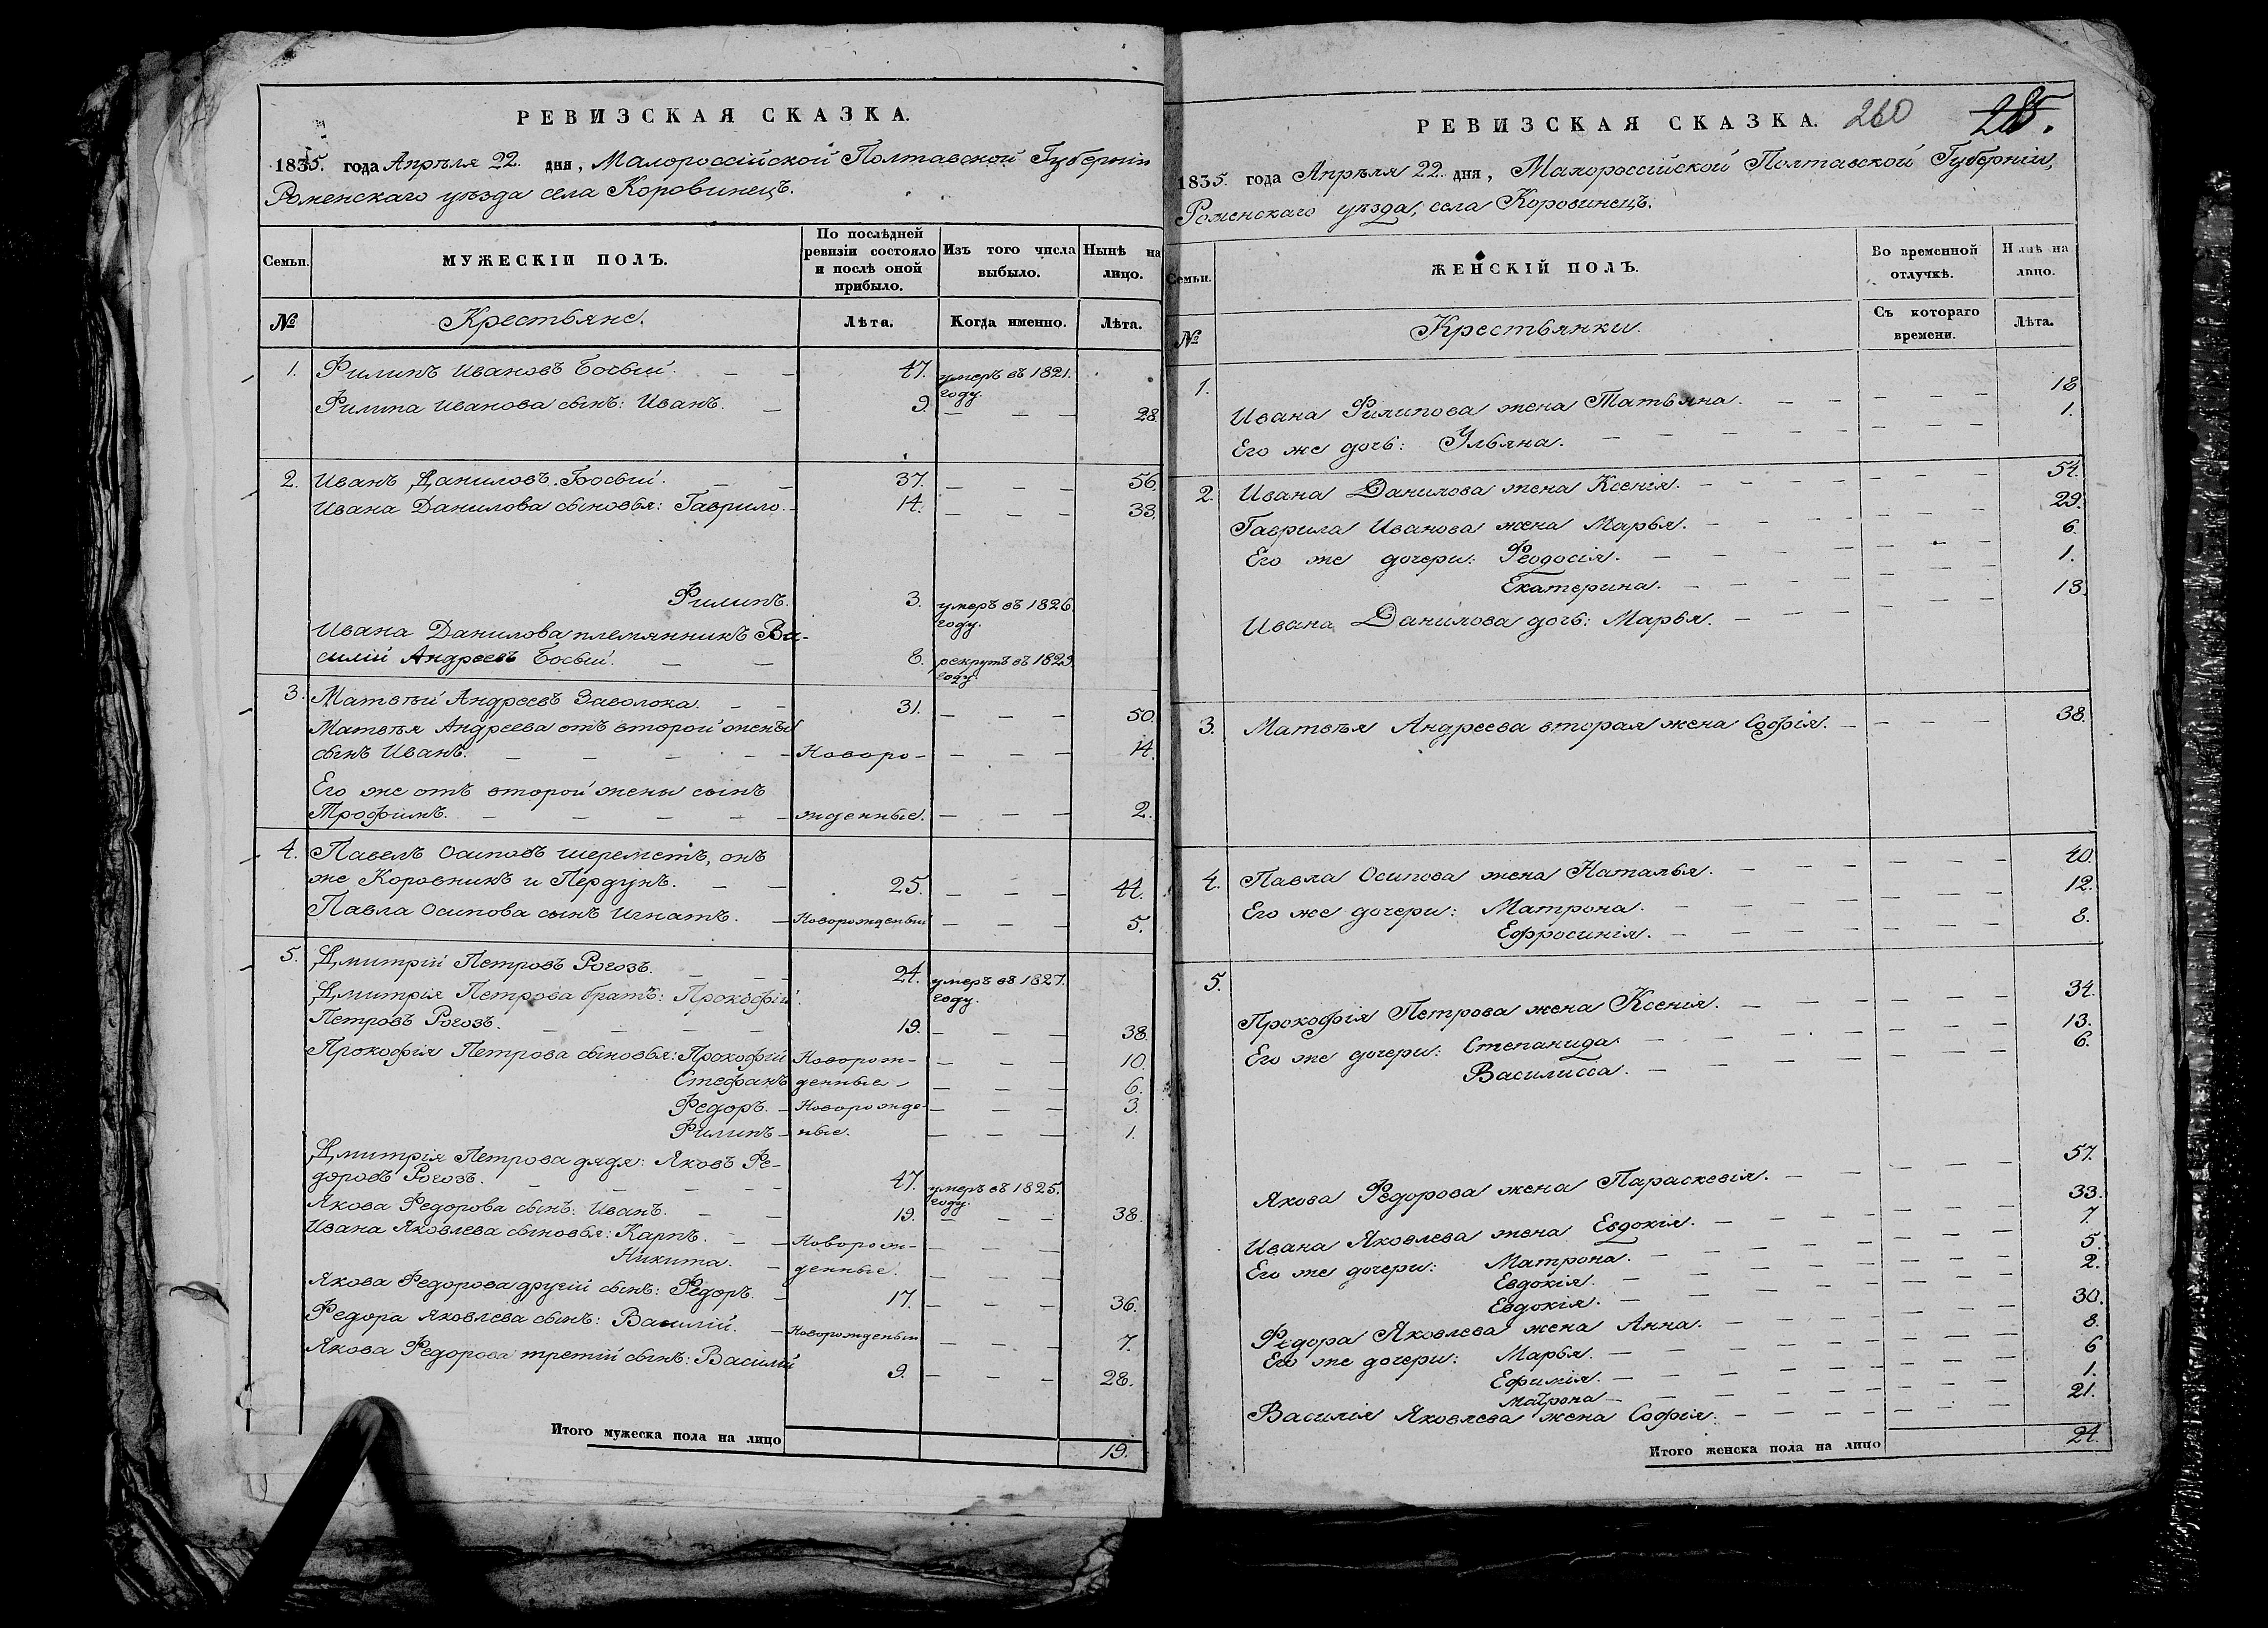 РЕВИЗСКАЯ СКАЗКА.
1835. года Апрѣля 22. дня, Малороссійской Полтавской Губерніи
Роменскаго уѣзда села Коровинецъ.
Семьи.
МУЖЕСКІЙ ПОЛЪ.
По послѣдней ревизіи состояло и послѣ оной прибыло.
Изъ того числа выбыло.
Нынѣ на лицо.
№
Крестьяне.
Лѣта.
Когда именно.
Лѣта.
1. Филипъ Ивановъ Босый. — — 47. умеръ въ 1821. году.
Филипа Иванова сынъ: Иванъ. — 9. — — — 28.
2. Иванъ Даниловъ Босый. — — 37. — — — 56.
Ивана Данилова сыновья: Гаврило. — 14. — — — 33.
Филипъ. 3. умеръ въ 1826 году.
Ивана Данилова племянникъ Ва-
силій Андреевъ Босый. — — 8. рекрутъ въ 1829. году.
3. Матвѣй Андреевъ Заволока. — — 31. — — — 50.
Матвѣя Андреева отъ второй жены
сынъ Иванъ. — — — — — Новоро- — — — 14.
Его же отъ второй жены сынъ
Трофимъ. — — — — — жденные. — — — 2.
4. Павелъ Осиповъ Шереметъ, онъ
же Коровникъ и Пердунъ. — — 25. — — — 44.
Павла Осипова сынъ Игнатъ. — Новорожденый — — — 5.
5. Дмитрій Петровъ Рогозъ. — — — 24. умеръ въ 1827. году.
Дмитрія Петрова братъ: Прокофій
Петровъ Рогозъ. — — — — 19. — — — 38.
Прокофія Петрова сыновья: Прокофій Новорож- — — — 10.
Стефанъ денные — — — — 6.
Федоръ. — Новорожде- — — — 3.
Филипъ — ные. — — — 1.
Дмитрія Петрова дядя: Яковъ Фе-
доровъ Рогозъ. — — — — 47. умеръ въ 1825. году.
Якова Федорова сынъ: Иванъ. — — 19. — — — 38.
Ивана Яковлева сыновья: Карпъ. — — Новорож- — — —
Никита. — денные. — — —
Якова Федорова другій сынъ: Федоръ. — 17. — — — 36.
Федора Яковлева сынъ: Василій. — Новорожденый — — — 7.
Якова Федорова третій сынъ: Василій 9. — — — 28.
Итого мужеска пола на лицо 19.
РЕВИЗСКАЯ СКАЗКА. 260
1835. года Апрѣля 22. дня, Малороссійской Полтавской Губерніи,
Роменскаго уѣзда, села Коровинецъ.
Семьи.
ЖЕНСКІЙ ПОЛЪ.
Во временной отлучкѣ.
Нынѣ на лицо.
№
Крестьянки.
Съ котораго времени.
Лѣта.
1. Ивана Филипова жена Татьяна. — — — — — 18
Его же дочь: Ульяна. — — — — — — — — 1.
2. Ивана Данилова жена Ксенія. — — — — — — — 54.
Гаврила Иванова жена Марья. — — — — — — — 29.
Его же дочери: Феодосія. — — — — — — — 6.
Екатерина. — — — — — — — 1.
Ивана Данилова дочь: Марья. — — — — — 13.
3. Матвѣя Андреева вторая жена Софія. — — — — 38.
4. Павла Осипова жена Наталья. — — — — — — — 40.
Его же дочери: Матрона. — — — — — — — — 12.
Ефросинія. — — — — — — — — 8.
5. Прокофія Петрова жена Ксенія. — — — — — — — 34.
Его же дочери: Степанида. — — — — — — — 13.
Василисса. — — — — — — — 6.
Якова Федорова жена Параскевія. — — — — — 57.
Ивана Яковлева жена Евдокія. — — — — — — — 33.
Его же дочери: Матрона. — — — — — — — — 7.
Евдокія. — — — — — — — — 5.
Евдокія. — — — — — — — — 2.
Федора Яковлева жена Анна. — — — — — — — 30.
Его же дочери: Марья. — — — — — — — 8.
Ефимія. — — — — — — — 6
Матрона — — — — — — — 1.
Василія Яковлева жена Софія. — — — — — — — 21.
Итого женска пола на лицо 24.